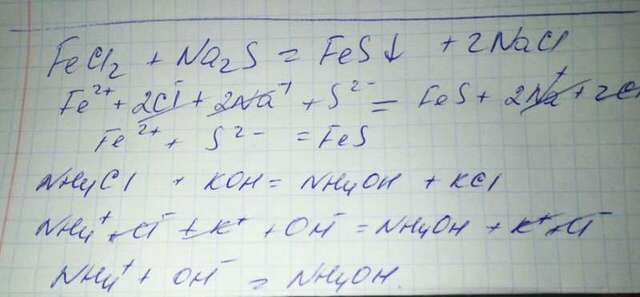 FeCl2 + Na2S = FeS↓ + 2NaCl
Fe2+ + 2Cl- + 2Na+ + S2- = FeS + 2Na+ + 2Cl
Fe2+ + S2- = FeS
NH4Cl + KOH = NH4OH + KCl
NH4+ + Cl- + K+ + OH- = NH4OH + K+ + Cl-
NH4+ + OH- = NH4OH.